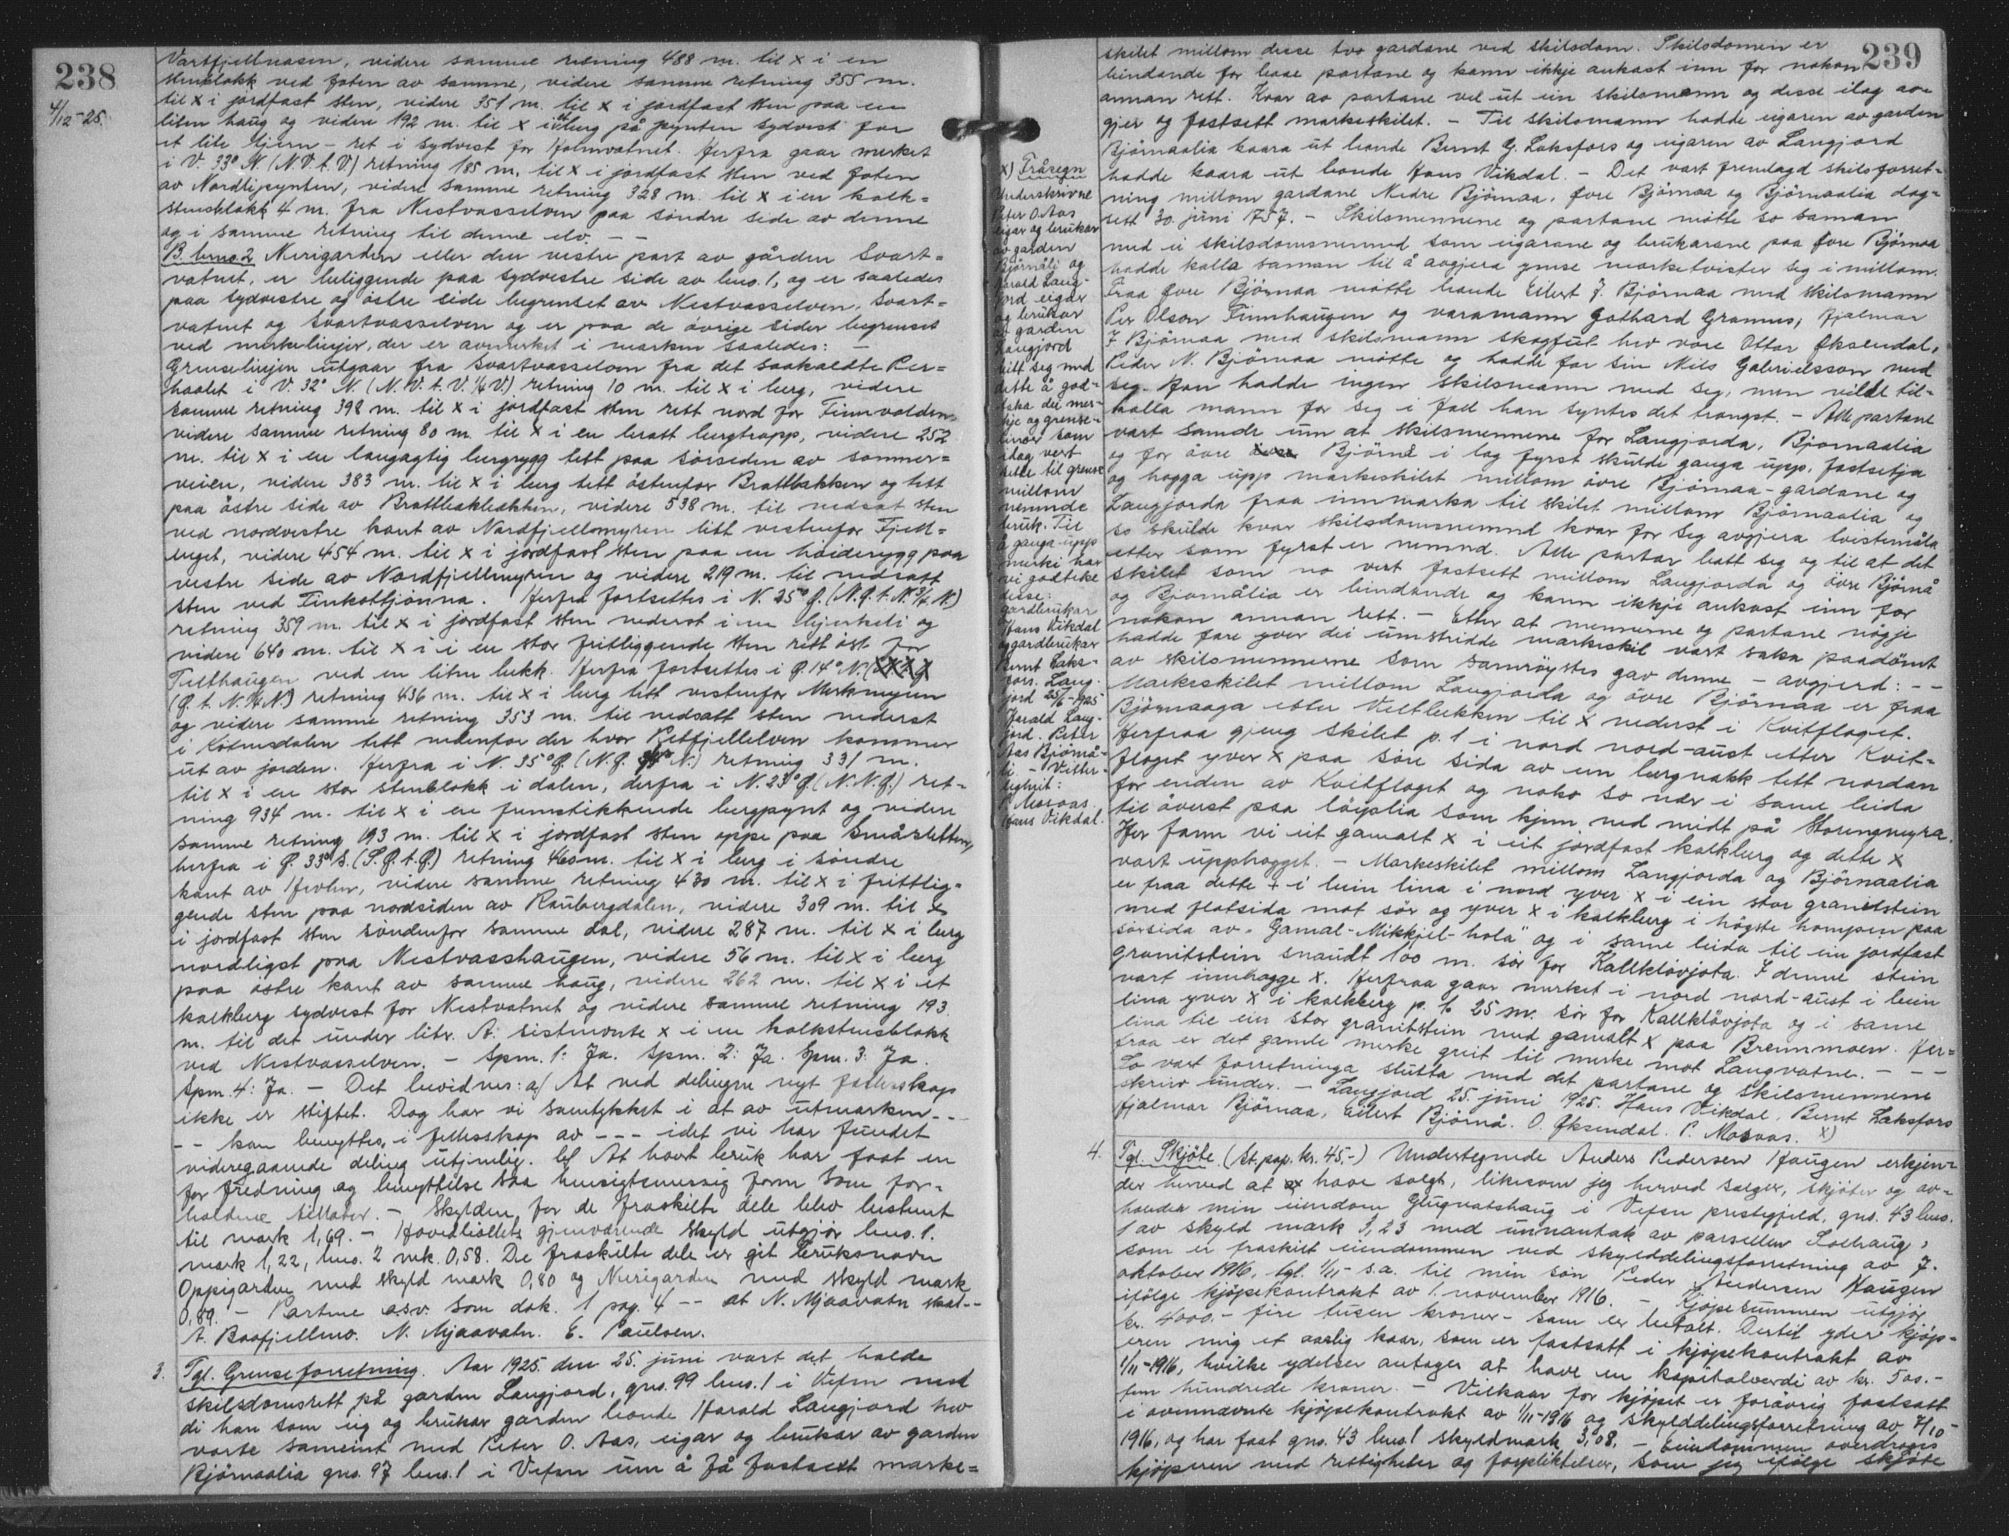 238
4/12-25.
Vartfjellnasen, videre samme retning 488 m. til x i en
stenblokk ved foten av samme, videre samme retning 355 m.
til x i jordfast sten, videre 351 m. til x i jordfast sten paa en
liten haug og videre 192 m. til x i berg på pynten sydvest for
et lite tjern - ret i sydvest for Holmvatnet. Herfra gaar merket
i V. 33° N (N.V.t.V.) retning 185 m. til x i jordfast sten ved foten
av Nordlipynten, videre samme retning 328 m. til x i en kalk=
stensblokk 4 m. fra Nestvasselven paa søndre side av denne
og i samme retning til denne elv. - -
B. brno 2 Nerigarden eller den vestre part av gården Svart=
vatnet, er beliggende paa sydvestre side av bno. 1, og er saaledes
paa sydvestre og östre side begrenset av Nestvasselven, Svart=
vatnet og Svartvasselven og er paa de övrige sider begrenset
ved merkelinjer, der er avmerket i marken saaledes: -
Grenselinjen utgaar fra Svartvasselven fra det saakaldte Per=
haalet i V. 32° N. (N.V.t.V.¼V.) retning 10 m. til x i berg, videre
samme retning 398 m. til x i jordfast sten rett nord for Finnvolden
videre samme retning 80 m. til x i en bratt bergtrapp, videre 252
m. til x i en langagtig bergrygg tett paa sörsiden av sommer=
veien, videre 383 m. til x i berg tett östenfor Brattbakken og tett
paa östre side av Brattbakbækken, videre 538 m. til nedsat sten
ved nordvestre kant av Nordfjellmyren litt vestenfor Fjell=
beget, videre 454 m. til x i jordfast sten paa en höiderygg paa
vestre side av Nordfjellmyren og videre 219 m. til nedsatt
sten ved Finkottjönna. Herfra fortsettes i N. 25° Ø. (N.Ø.t.N.¾N.)
retning 359 m. til x i jordfast sten nederst i en bjerkeli og
videre 640 m. til x i i en stor frittliggende sten rett öst for
Tilthaugen ved en liten bekk. Herfra fortsettes i Ø. 14° N.
(Ø.t.N.¼N.) retning 436 m. til x i berg tett vestenfor Merkmyren
og videre samme retning 353 m. til nedsatt sten nederst
i Kölnesdalen tett nedenfor der hvor Retfjellelven kommer
ut av jorden. Herfra i N. 35° Ø. (N.Ø. N.) retning 331 m.
til x i en stor stenblokk i dalen, derfra i N. 23° Ø. (N.N.Ø.) ret=
ning 934 m. til x i en fremstikkende bergpynt og videre
samme retning 193 m. til x i jordfast sten oppe paa Smársletten,
herfra i Ø. 33° S. (S.Ø.t.Ø.) retning 460 m. til x i berg i söndre
kant av, videre samme retning 430 m. til x i frittlig=
gende sten paa nordsiden av Raubergdalen, videre 309 m. til x
i jordfast sten søndenfor samme dal, videre 287 m. til x i berg
nordligst paa Nestvasshaugen, videre 56 m. til x i berg
paa östre kant av samme haug, videre 262 m. til x i et
kalkberg sydvest for Nestvatnet og videre samme retning 193
m. til det under litr. A. sistnevnte x i en kalkstensblokk
ved Nestvasselven. - Spm. 1: Ja. Spm. 2: Ja. Spm. 3: Ja.
Spm. 4: Ja. - Det bevidnes: a/ At ved delingen nyt fællesskap
ikke er stiftet. Dog har vi samtykket i at av utmarken - -
- - kan benyttes i fellesskap av - - - idet vi har fundet
videregaaende deling utjenlig. b/ At hvert bruk har faat en
for fredning og benyttelse saa hensigtsmessig form som for=
holdene tillater. - Skylden for de fraskilte dele blev bestemt
til mark 1,69. - Hovedbölets gjenværende skyld utgjør bno. 1.
mark 1,22, bno. 2 mrk. 0,58. De fraskilte dele er git bruksnavn
Oppigarden med skyld mark 0,80 og Nerigarden med skyld mark
0,89. - Partene osv. som dok. 1 pag. 4 - - at N. Mjaavatn skal - -
A. Baafjellmo. N. Mjaavatn. E. Paulsen.
3. Tgl. Grenseforretning. Aar 1925 den 25. juni vart det halde
skilsdomsrett på garden Langjord, gno. 99 bno. 1 i Vefsn med
di han som eig og brukar garden bonde Harald Langjord hev
vorte sameint med Peter O. Aas, eigar og brukar av garden
Björnaalia gno. 97 bno. 1 i Vefsn um å få fastsett marke=
x) Fråsegn
Underskrivne
Peter O. Aas
eigar og brukar
av garden
Björnåli og
Harald Lang-
jord eigar
og brukar
av garden
Langjord
bitt seg med
dette å god-
taka dei mer-
kje og grense-
linor som
idag vert
sette til grense
millom
nemnde
bruk. Til
å ganga upp
merki har
vi godteke
desse:
gardbrukar
Hans Vikdal
og gardbrukar
Bernt Laks-
fors. Lang-
jord 25/6-1925
Harald Lang-
jord. Peter
Aas Björnå-
li - Vitter-
legheit:
P. Mosaas.
Hans Vikdal.
239
skilet millom desse tvo gardane ved skilsdom. Skilsdomen er
bindande for baae partane og kann ikkje ankast inn for nokon
annan rett. Kvar av partane vel ut ein skilsmann og desse ilag av=
gjer og fastsett markeskilet. - Til skilsmann hadde eigaren av garden
Björnaalia kaara ut bonde Bernt G. Laksfors og eigaren av Langjord
hadde kaara ut bonde Hans Vikdal. - Det vart fremlagd skilsforret=
ning millom gardane Nedre Björnaa, övre Björnaa og Björnaalia dag=
sett 30. juni 1757. - Skilsmennene og partane møtte so saman
med ei skilsdomsnemnd som eigarane og brukarane paa övre Björnaa
hadde kalla saman til å avgjera ymse marketvister seg i millom.
Fraa övre Björnaa møtte bonde Eilert J. Björnaa med skilsmann
Per Olson Finnhaugen og varamann Gothard Granmo, Hjalmar
J. Björnaa med skilsmann skogfut hev vore Ottar Øksendal,
Peder N. Björnaa møtte og hadde for sin Nils Gabrielsson med
seg. Han hadde ingen skilsmann med seg, men vilde til=
kalla mann for seg i fall han syntes det trongst. - Alle partane
vart samde um at skilsmennene for Langjorda, Björnaalia
og for övre Björnå i lag fyrst skulde ganga upp, fastsetja
og hogga upp markeskilet millom övre Björnaa-gardane og
Langjorda fraa innmarka til skilet millom Björnaalia og
so skulde kvar skilsdomsnemnd kvar for seg avgjera tvistemåla
etter som fyrst er nemnd. Alle partar batt seg og til at det
skilet som no vert fastsett millom Langjorda og övre Björnå
og Björnålia er bindande og kann ikkje ankast inn for
nokon annan rett. - Etter at mennerne og partane nögje
hadde fare yver dei umstridde markeskil vart saka paadömt
av skilsmennerne som samröystes gav denne - avgjerd: - -
Markeskilet millom Langjorda og övre Björnaa er fraa
Björnaaga etter Veltbekken til x nederst i Kvitflaget.
Herfraa gjeng skilet p. 1 i nord nord-aust etter Kvit=
flaget yver x paa søre sida av en bergnakk tett nordan
for enden av Kvitflaget og noko so nær i same leida
til överst paa löypelia som kjem ned midt på Storengmyra.
Her fann vi eit gamalt x i eit jordfast kalkberg og dette x
vart upphogget. - Markeskilet millom Langjorda og Björnaalia
er fraa dette + i bein lina i nord yver x i ein stor granitstein
med flatsida mot sör og yver x i kalkberg i högste hompen paa
sørsida av "Gamal-Mikkjel-hola" og i same leida til ein jordfast
granitstein snaudt 100 m. sör for Kallklövjota. I denne stein
vart innhogge x. Herfraa gaar merket i nord nord-aust i bein
lina yver x i kalkberg p. 1. 25 m. sör for Kallklövjota og i same
lina til ein stor granitstein med gamalt x paa Brennmoen. Her=
fraa er det gamle merke greit til merke mot Langvatne. - - -
So vart forretninga slutta med det partane og skilsmennene
skriv under. - Langjord 25. juni 1925. Hans Vikdal. Bernt Laksfors
Hjalmar Björnaa, Eilert Björnå. O. Øksendal. P. Mosaas. x)
4. Tgl. Skjöte (St. pap. kr. 45.-) Undertegnede Anders Pedersen Haugen erkjen=
der herved at have solgt, likesom jeg herved sælger, skjöter og av=
hender min eiendom Glugvatshaug i Vefsn prestegjeld, gno. 43 bno.
1 av skyld mark 3,23 med unnantak av parsellen Solhaug,
som er fraskilt eiendommen ved skylddelingsforretning av 7.
oktober 1916, tgl. 1/11 s.a. til min søn Peder Andersen Haugen
ifølge kjøpekontrakt av 1. november 1916. - Kjøpesummen utgjør
kr. 4000.- fire tusen kroner - som er betalt. Dertil yder kjøp=
eren mig et aarlig kaar, som er fastsatt i kjøpekontrakt av
1/11-1916, hvilke ydelser antages at have en kapitalverdi av kr. 500.-
fem hundrede kroner. - Vilkaar for kjøpet er forøvrig fastsatt
i ovennævnte kjøpekontrakt av 1/11-1916 og skylddelingsforretning av 7/10-
1916, og har faat gno. 43 bno. 1 skyldmark 3,08. - Eiendommen overdrages
kjøperen med rettigheter og forpliktelser, som jeg ifølge skjøte